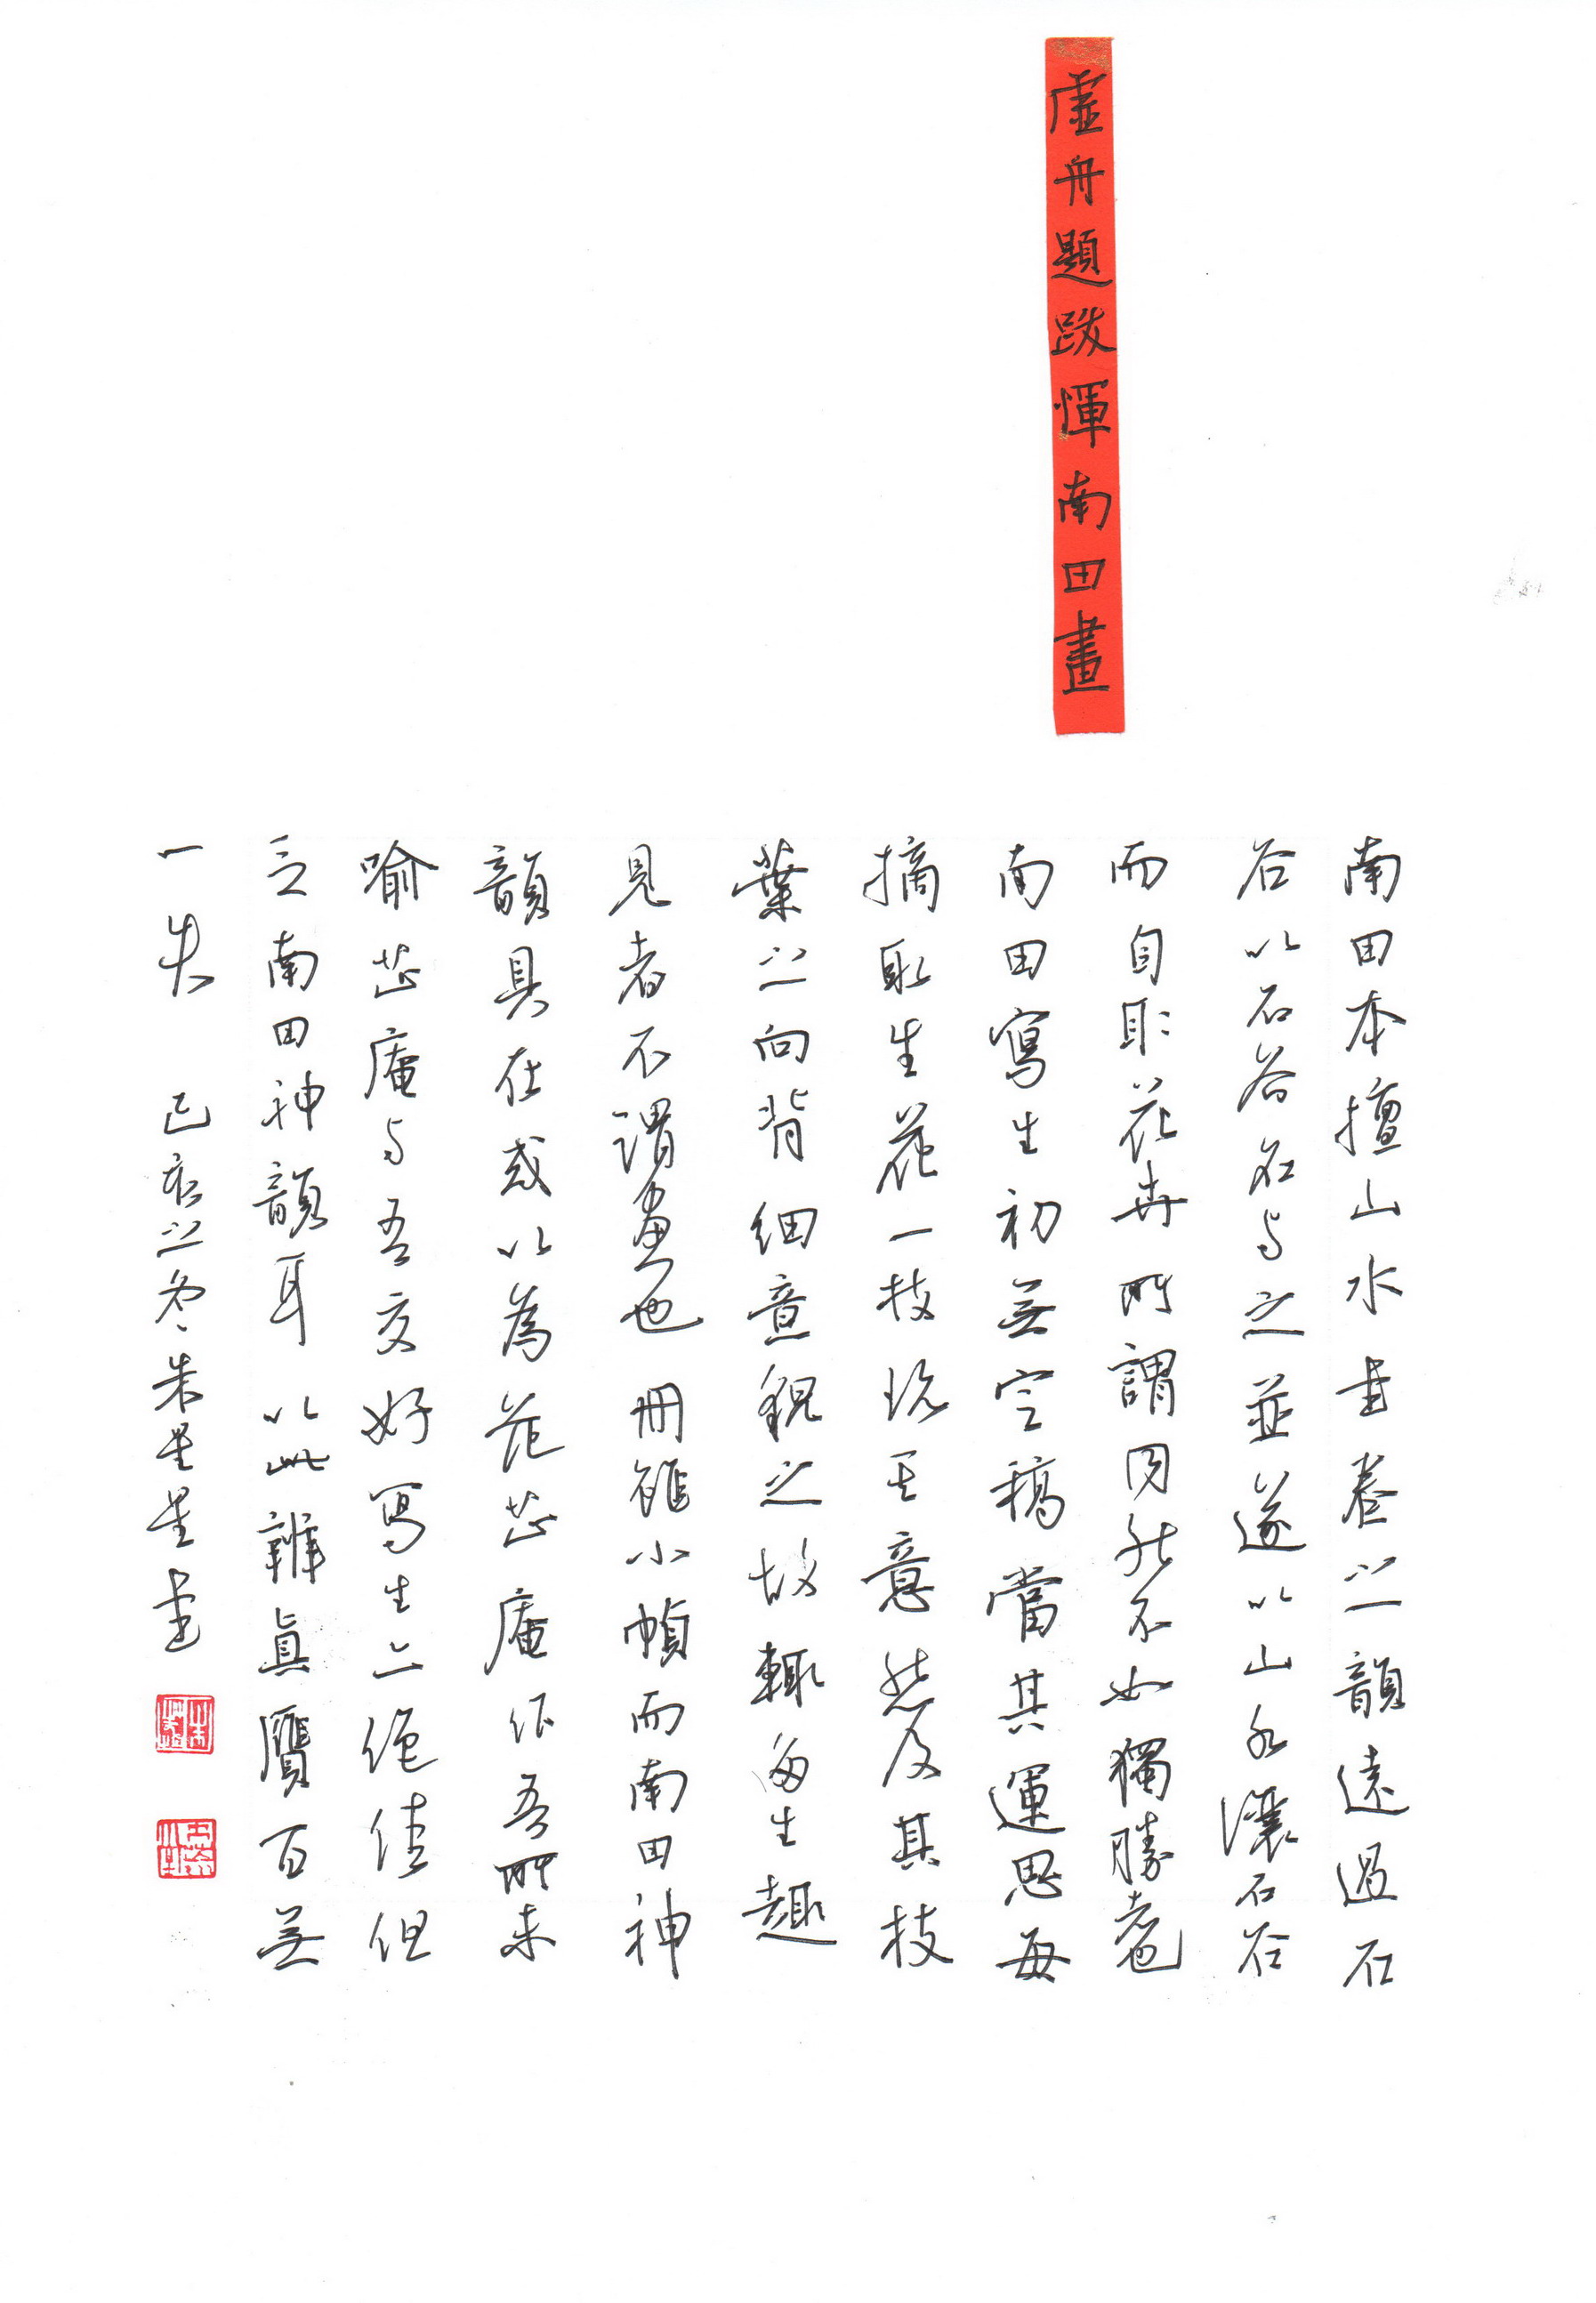 虛舟題跋惲南田畫
南田本擅山水畫養之韻遠過石
谷以石谷名与之並遂以山水讓石谷
而自取花卉所謂同能不如獨勝者也
南田寫生初無定稿當其運思每
摘取生花一枝玩其意態及其枝
葉之向背細意貌之故輒多生趣
見者不謂畫也冊雖小幀而南田神
韻具在或以為花芷庵作吾所未
喻芷庵与吾交好写生亦絕佳但
乏南田神韻耳以此辨真贗百無
一失 己亥之冬朱星星書